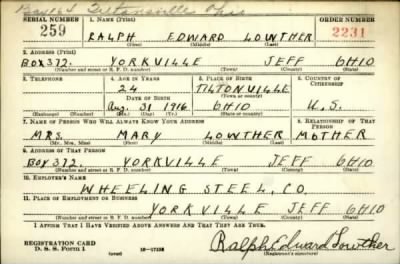 Box 64 Tiltonsville Ohio
SERIAL NUMBER 1. NAME (Print) ORDER NUMBER
259 RALPH EDWARD LOWTHER 2231
(First) (Middle) (Last)
2. ADDRESS (Print)
BOX 372. YORKVILLE JEFF OHIO
(Number and street or R. F. D. number) (Town) (County) (State)
3. TELEPHONE 4. AGE IN YEARS 5. PLACE OF BIRTH 6. COUNTRY OF CITIZENSHIP
24 TILTONVILLE
DATE OF BIRTH (Town or county)
Aug. 31 1916 OHIO U.S.
(Exchange) (Number) (Mo.) (Day) (Yr.) (State or country)
7. NAME OF PERSON WHO WILL ALWAYS KNOW YOUR ADDRESS 8. RELATIONSHIP OF THAT PERSON
MRS. MARY LOWTHER MOTHER
(Mr., Mrs., Miss) (First) (Middle) (Last)
9. ADDRESS OF THAT PERSON
BOX 372. YORKVILLE JEFF OHIO
(Number and street or R. F. D. number) (Town) (County) (State)
10. EMPLOYER'S NAME
WHEELING STEEL, CO.
11. PLACE OF EMPLOYMENT OR BUSINESS
YORKVILLE JEFF OHIO
(Number and street or R. F. D. number) (Town) (County) (State)
I AFFIRM THAT I HAVE VERIFIED ABOVE ANSWERS AND THAT THEY ARE TRUE.
REGISTRATION CARD
D. S. S. Form 1 (over) 16-17105 Ralph Edward Lowther
(Registrant's signature)